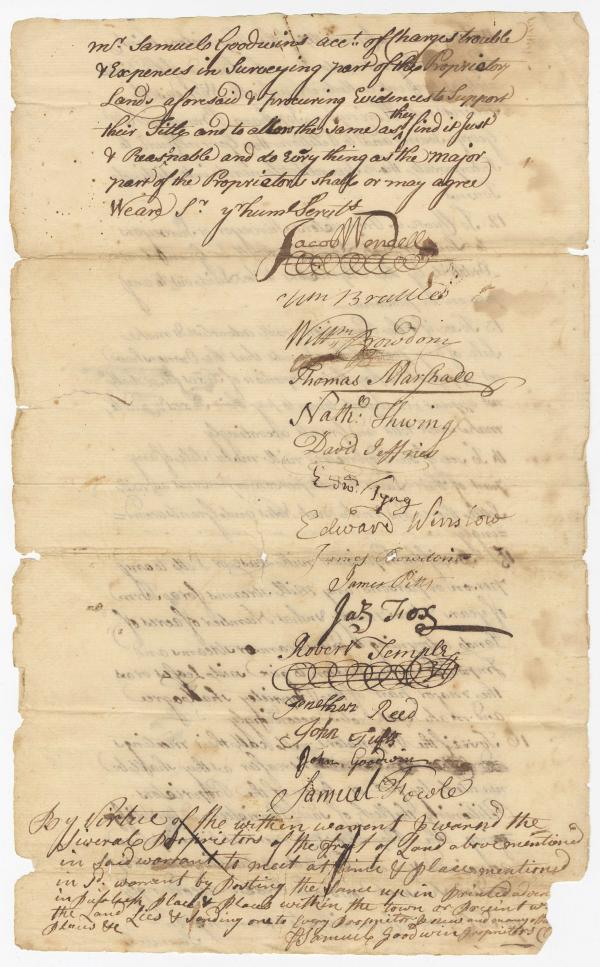 mr. Samuel Goodwins acct. of Charges trouble
& Expences in Surveying part of the Proprietors
Lands aforesaid & procuring Evidences to Support
their Title and to allow the same as they find it Just
& Reasonable and do Every thing as the major
part of the Proprietors shall or may agree
We are Sr. yr. huml. Servts
Jacob Wendell
Wm Brattle
Willm Bowdoin
Thomas Marshall
Nathl. Thwing
David Jeffries
Edwd. Tyng
Edward Winslow
James Bowdoin
James Pitts
Jaz Fox
Robert Temple
Jonathan Reed
John Tufts
John Goodwin
Samuel Fowle
By Virtue of the within warrent I warnd the
Siveral Proprietors of the Tract of Land above mentioned
in Said warrant to meet at time & place mentioned
in Sd. warrent by Posting the Same up in Printed
in Publick Place & Places within the town or
the Land Lies & Sending one to Every Proprietor
Places &c
Samuel Goodwin Proprietors